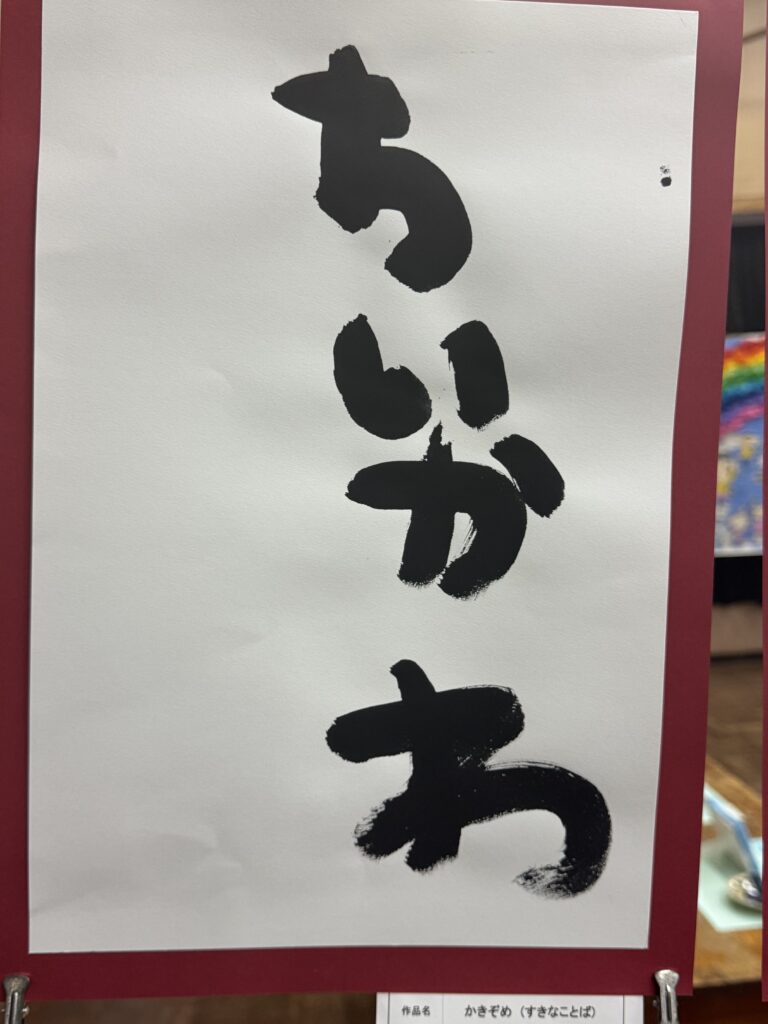 ちいかわ
作品名 かきぞめ（すきなことば）